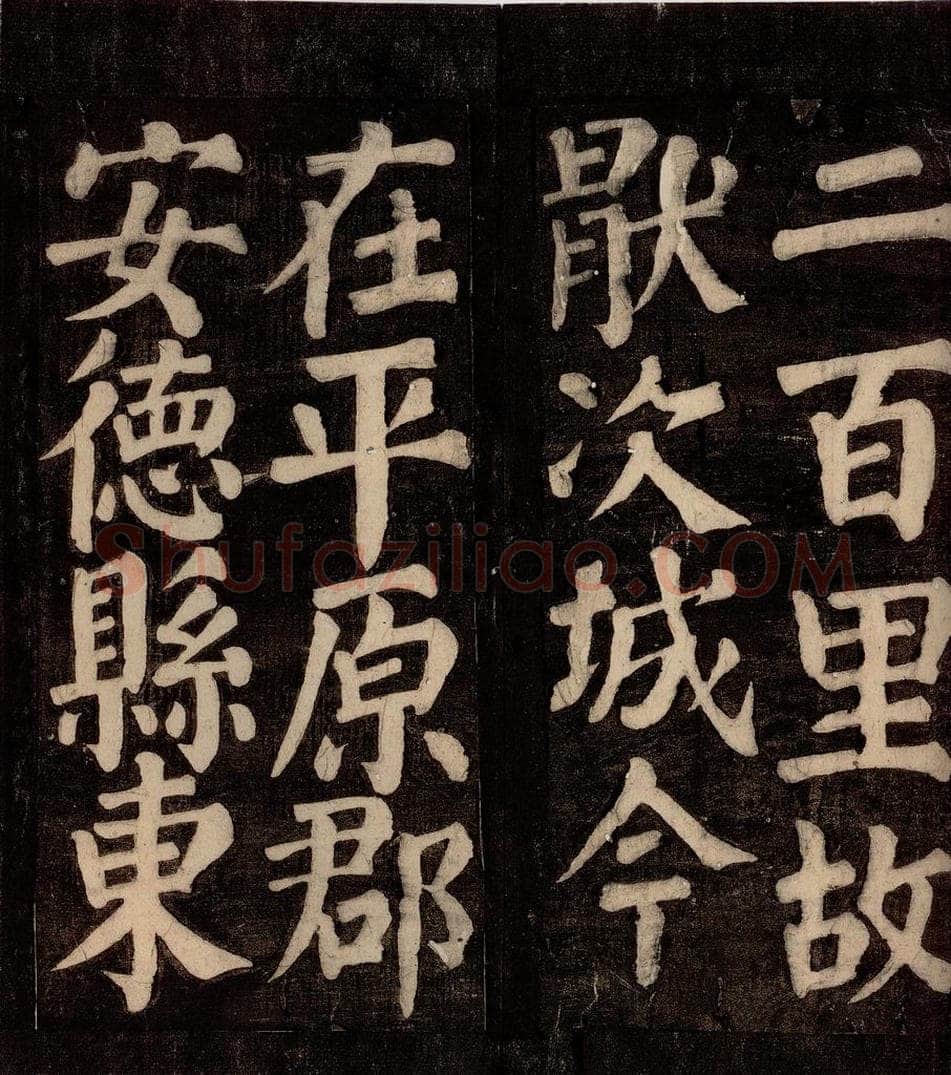 二百里故
猒次城今
在平原郡
安德縣東
Shufaziliao.COM